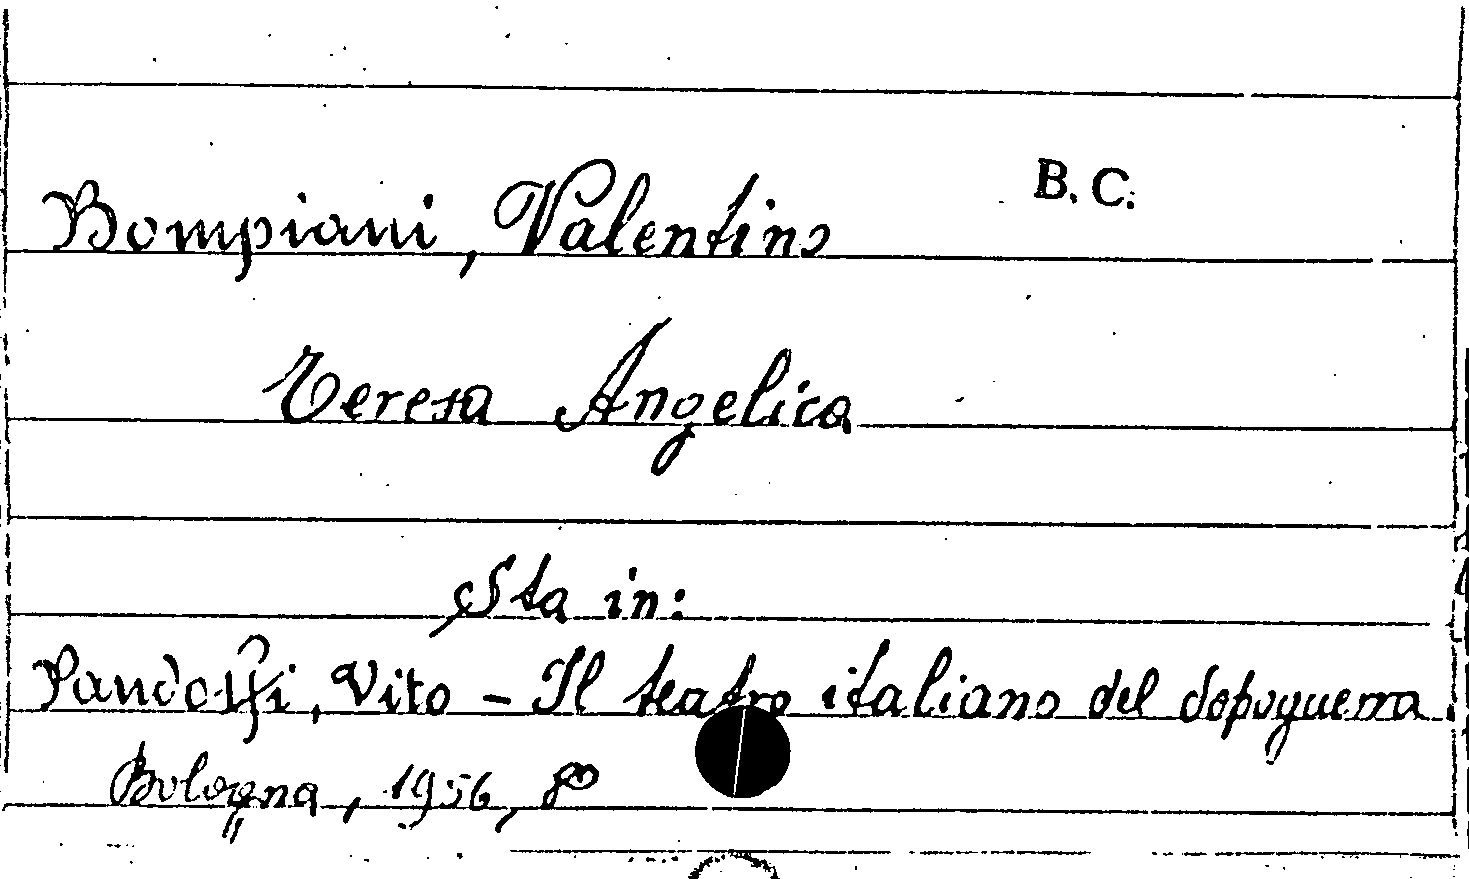 B. C.
Bompiani, Valentino
Teresa Angelica
Sta in:
Pandolfi, Vito - Il teatro italiano del dopoguerra.
Bologna, 1956, 8°